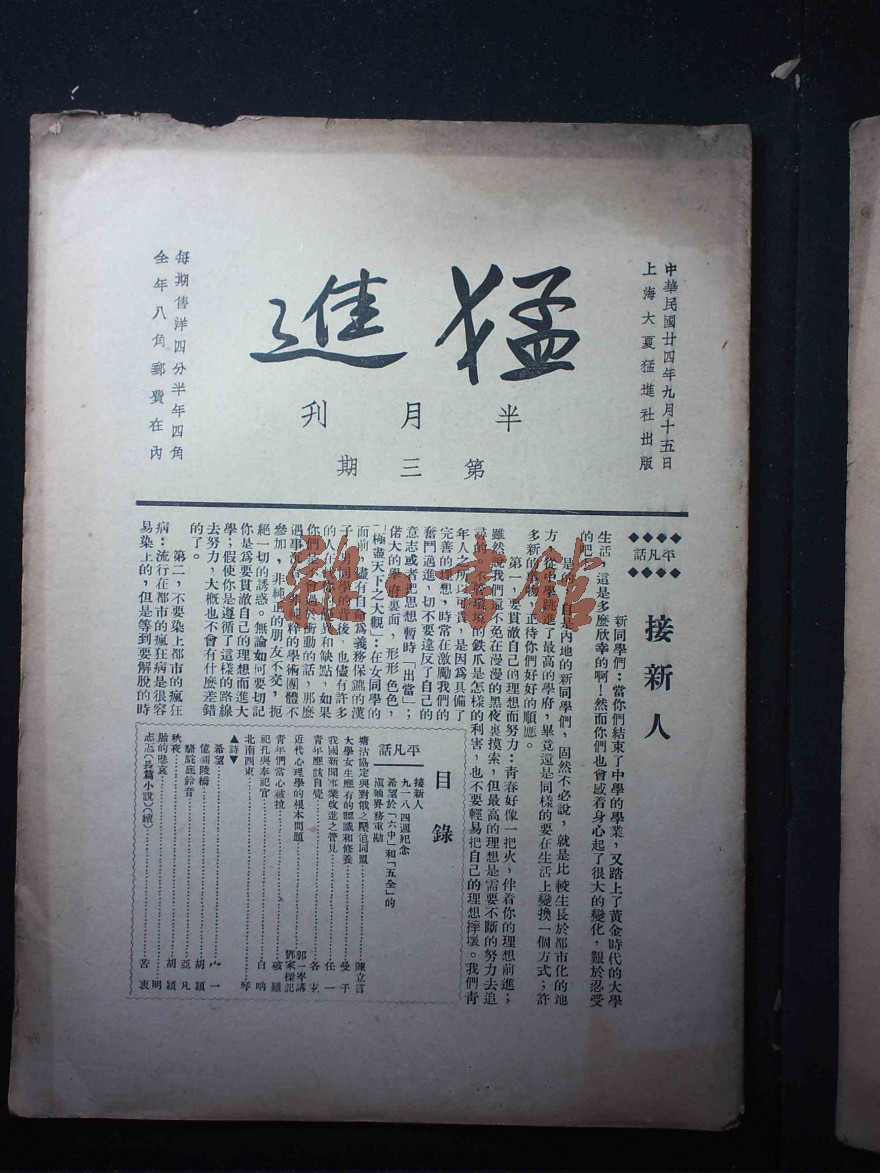 中華民國廿四年九月十五日
上海大夏猛進社出版
猛進
半月刊
第三期
每期售洋四分半年四角
全年八角郵費在內
平凡話
接新人
新同學們：當你們結束了中學的學業，又踏上了黃金時代的大學
生活，這是多麼欣幸的啊！然而你們也會感着身心起了很大的變化，艱於忍受
的吧
是的，自內地的新同學們，固然不必說，就是比較生長於都市化的地
方，從中學跳進了最高的學府，畢竟還是同樣的要在生活上變換一個方式；許
多新的物，正待你們好好的順應。
第一，要貫澈自己的理想而努力：青春好像一把火，伴着你的理想前進；
雖然說我們還不免在漫漫的黑夜裏摸索，但最高的理想是需要不斷的努力去追
尋的，不管環境的鉄爪是怎樣的利害，也不要輕易把自己的理想摔壞。我們青
年人之所以可貴，是因爲具備了
完善的理想，時常在激勵我們的
奮鬥邁進，切不要違反了自己的
意志或者把思想暫時「出當」；
偌大的學府裏面，形形色色，
「極盡天下之大觀」：在女同學的
面前，儘有自命爲義務保鑣的漢
子；男同學的背後，也儘有許多
的人在優異和缺點，如果
你們過於衝動的話，那麼
遇事純粹的學術團體不
參加，非純正的朋友不交，扼
絕一切的誘惑。無論如何要切記
你是爲要貫澈自己的理想而進大
學；假使你是遵循了這樣的路線
去努力，大概也不會有什麼差錯
的了。
第二，不要染上都市的瘋狂
病：流行在都市的瘋狂病是很容
易染上的，但是等到要解脫的時
目錄
平凡話
接新人
九一八四週紀念
希望於「六中」和「五全」的
滇緬界務重勘
塘沽協定與對俄之壓迫同盟 陳立言
大學女生應有的認識和修養 曼子
我國新聞事業改進之管見 任一
青年應該自覺 各玄
近代心理學的根本問題 郭一岑講 記
青年們當心被拉 破雞
祀孔與奉祀官 白吶
北南西東 琴
▲詩▼
希望 一
億嗣陵橋 胡穎
駱駝底鈴音 亞凡
秋夜 胡穎
胎的悲哀 明
志(長篇小說)(續) 苦衷